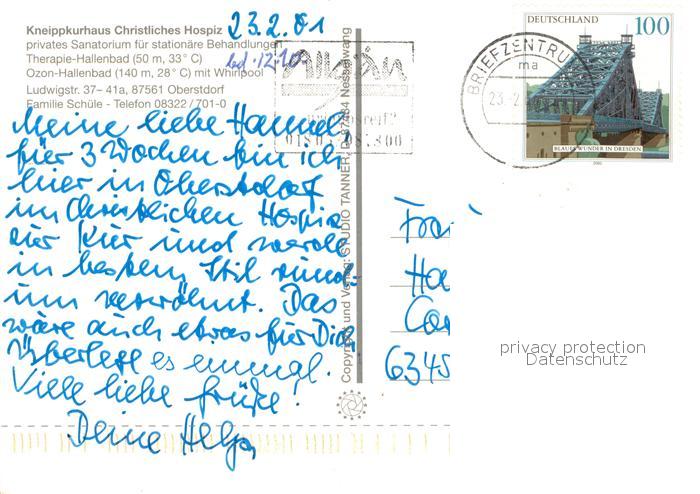 Kneippkurhaus Christliches Hospiz
privates Sanatorium für stationäre Behandlungen
Therapie-Hallenbad (50 m, 33° C)
Ozon-Hallenbad (140 m, 28° C) mit Whirlpool
Ludwigstr. 37– 41a, 87561 Oberstdorf
Familie Schüle - Telefon 08322 / 701-0
23.2.01
Meine liebe Hannel,
für 3 Wochen bin ich
hier in Oberstdorf
im Christlichen Hospiz
zur Kur und werde
in bestem Stil rund-
um verwöhnt. Das
wäre auch etwas für Dich
Überlege es einmal.
Viele liebe Grüße!
Deine Helga
Copyright und Verlag: STUDIO TANNER, D-87484 Nesselwang
BRIEFZENTRUM
ma
23.-2.
DEUTSCHLAND
100
BLAUES WUNDER IN DRESDEN
2000
Frau
Ha
6345
privacy protection
Datenschutz